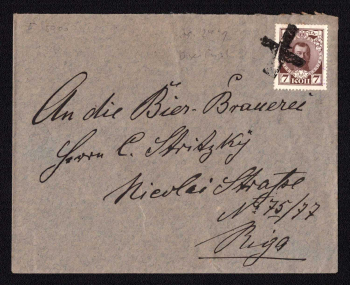 7 КОП 7
An die Bier-Brauerei
Herrn C. Stritzky
Nicolai Straße
№ 75/77
Riga